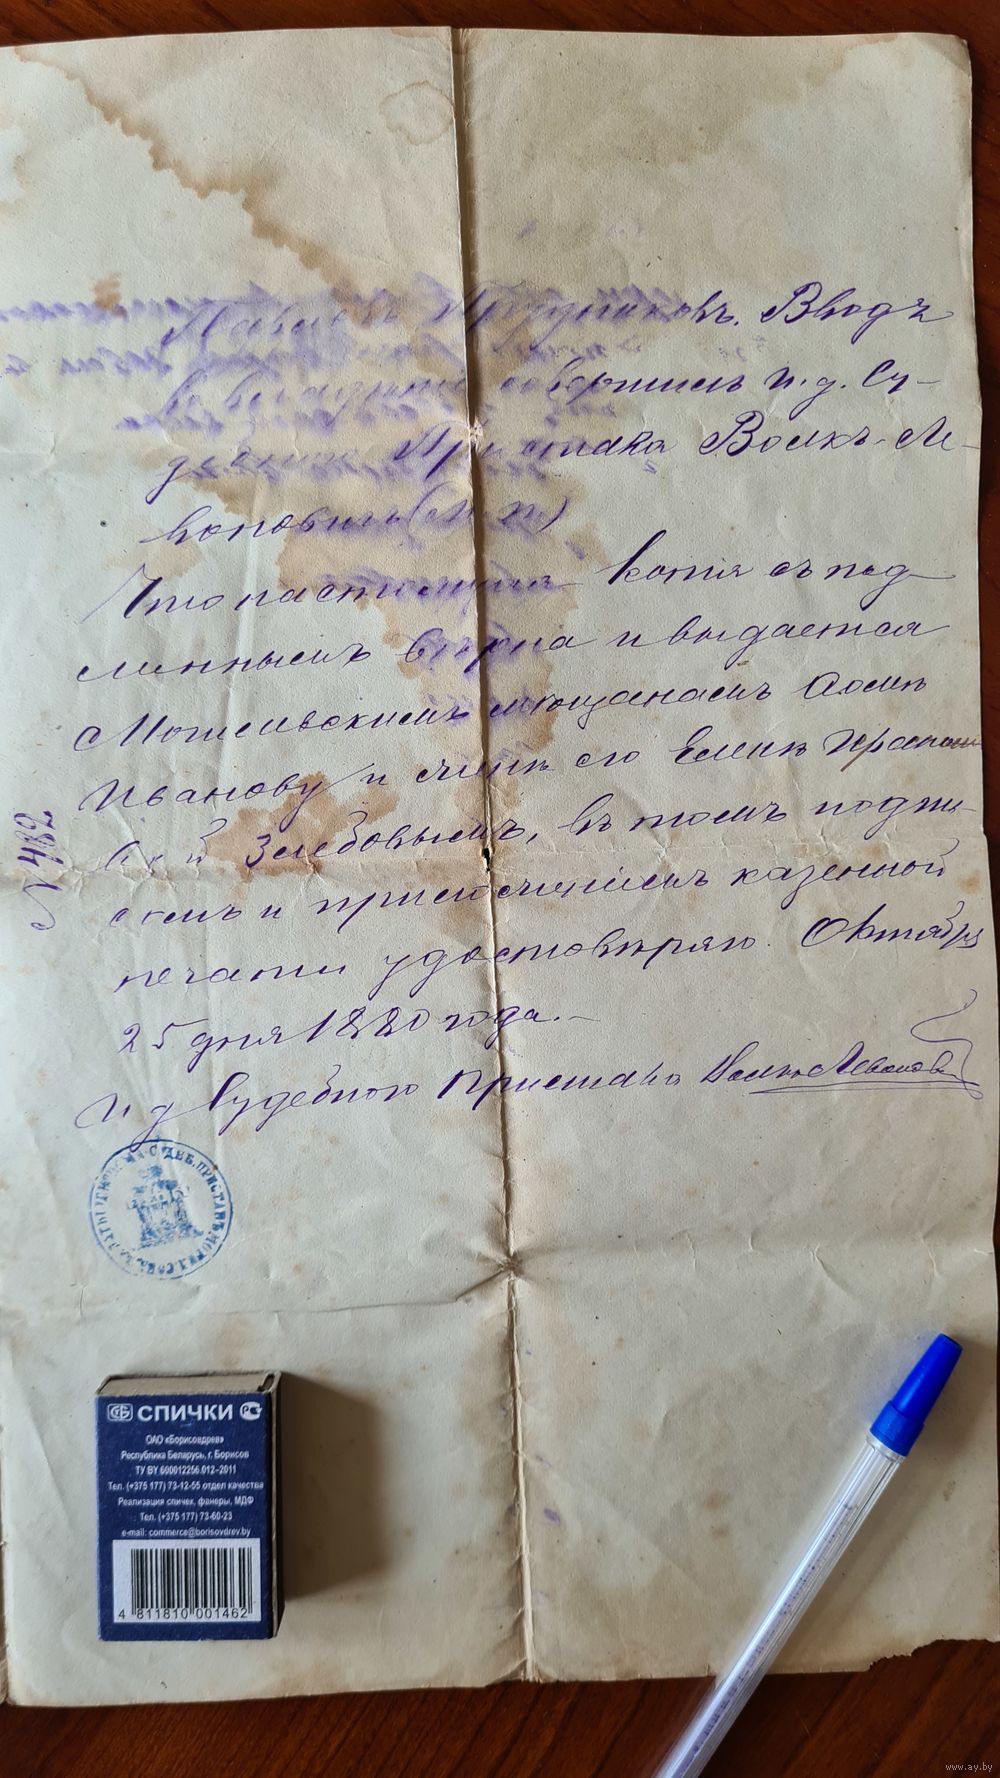 Павелъ Прудниковъ. Вводъ
во владѣніе совершилъ И. д. Су-
дебнаго Пристава Волкъ-Ле-
воновичъ (М. П.)
Что настоящая копія съ под-
линнымъ вѣрна и выдается
Могилевскимъ мѣщанамъ
Иванову и его Еленѣ
Зелебовымъ, въ томъ подпи-
сомъ и приложеніемъ казенной
печати удостовѣряю. Октября
25 дня 1880 года.-
И д Судебного Пристава Волкъ Левонов
N 482
СУДЕБ. ПРИСТАВЪ МОГИЛ.
СПИЧКИ
ОАО «Борисовдрев»
Республика Беларусь, г. Борисов
ТУ BY 600012256.012-2011
Тел. (+375 177) 73-12-55 отдел качества
Реализация спичек, фанеры, МДФ
Тел. (+375 177) 73-60-23
e-mail: commerce@borisovdrev.by
4 811810 001462
www.ay.by